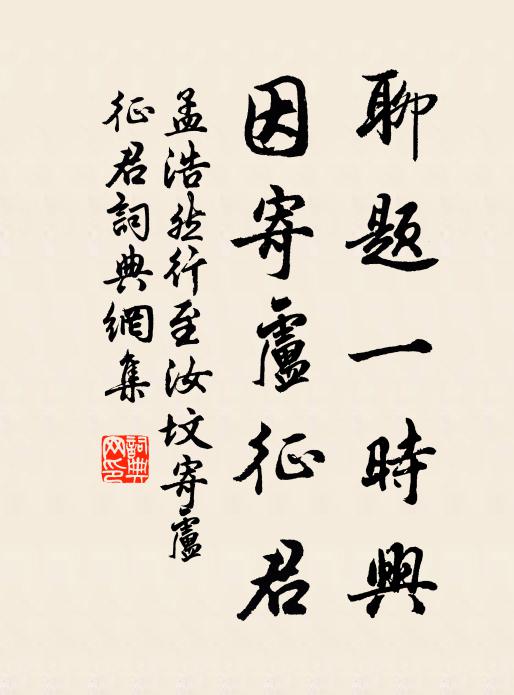 聊題一時興
因寄廬征君
孟浩然行至汝墳寄廬
征君詞典網集
詞典网印